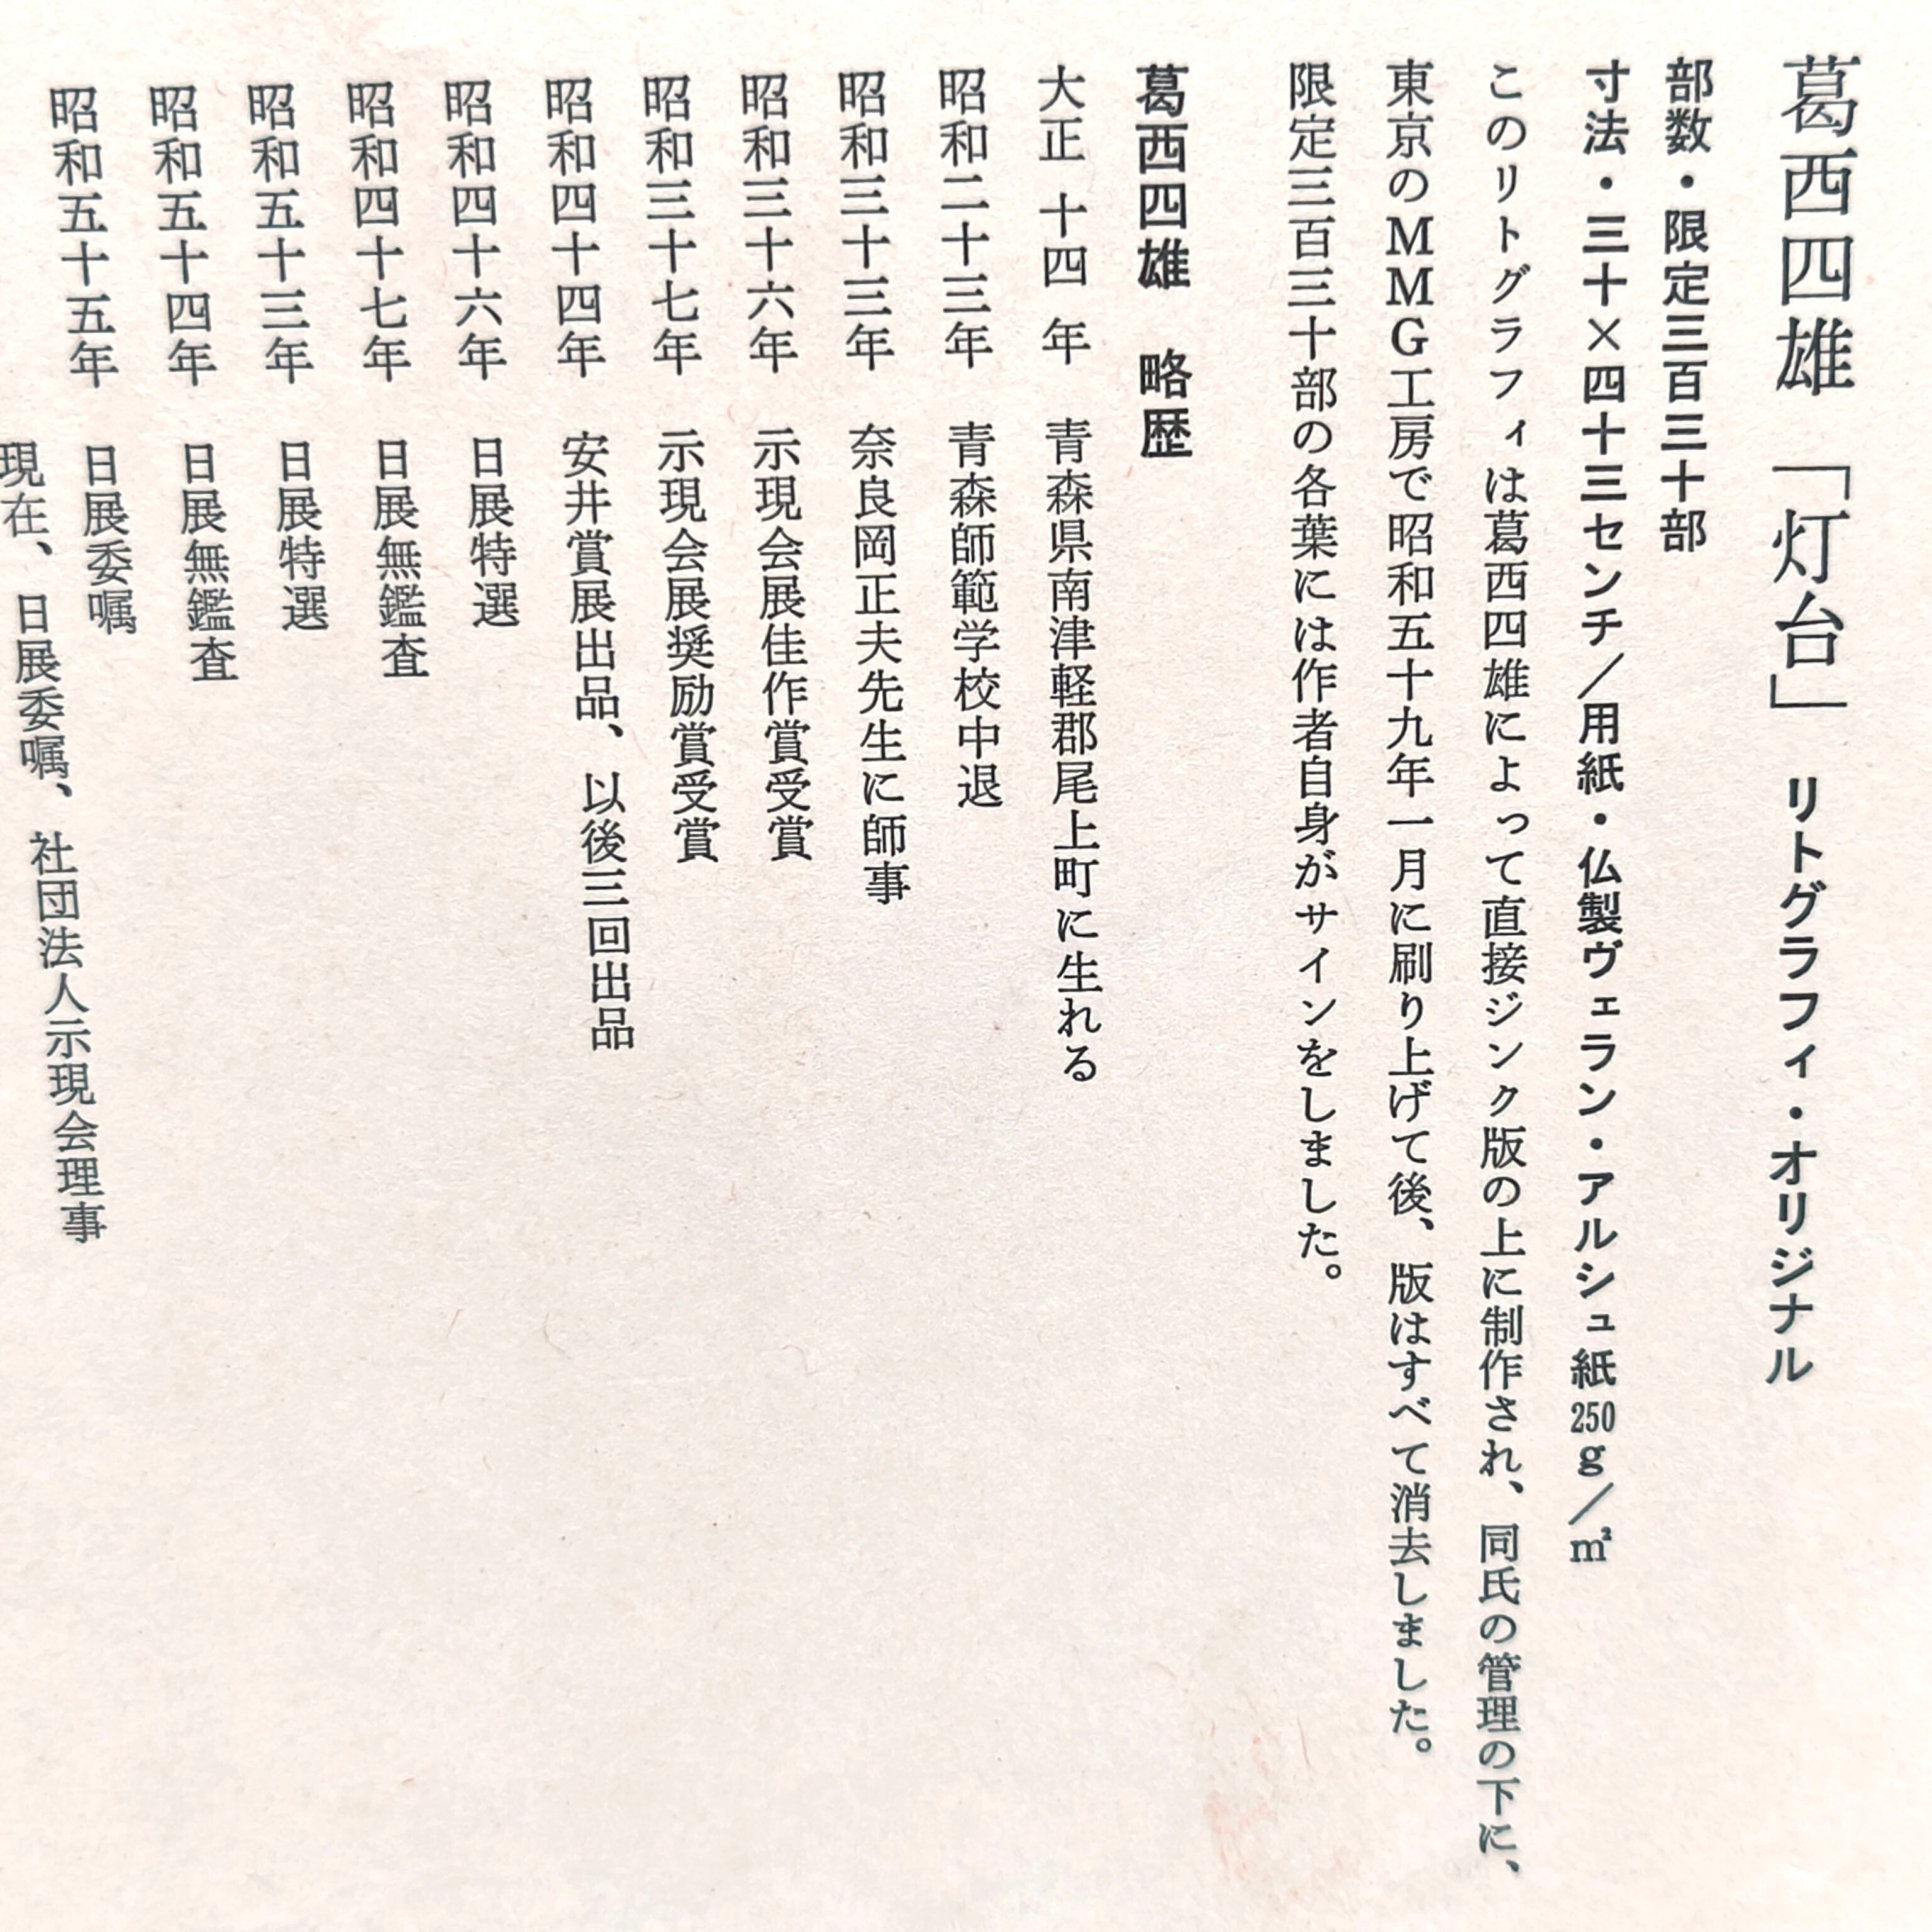 葛西四雄「灯台」リトグラフィ・オリジナル
部数・限定三百三十部
寸法・三十×四十三センチ／用紙・仏製ヴェラン・アルシュ紙250g／㎡
このリトグラフィは葛西四雄によって直接ジンク版の上に制作され、同氏の管理の下に、
東京のMMG工房で昭和五十九年一月に刷り上げて後、版はすべて消去しました。
限定三百三十部の各葉には作者自身がサインをしました。
葛西四雄　略歴
大正十四年　青森県南津軽郡尾上町に生れる
昭和二十三年　青森師範学校中退
昭和三十三年　奈良岡正夫先生に師事
昭和三十六年　示現会展佳作賞受賞
昭和三十七年　示現会展奨励賞受賞
昭和四十四年　安井賞展出品、以後三回出品
昭和四十六年　日展特選
昭和四十七年　日展無鑑査
昭和五十三年　日展特選
昭和五十四年　日展無鑑査
昭和五十五年　日展委嘱
現在、日展委嘱、社団法人示現会理事